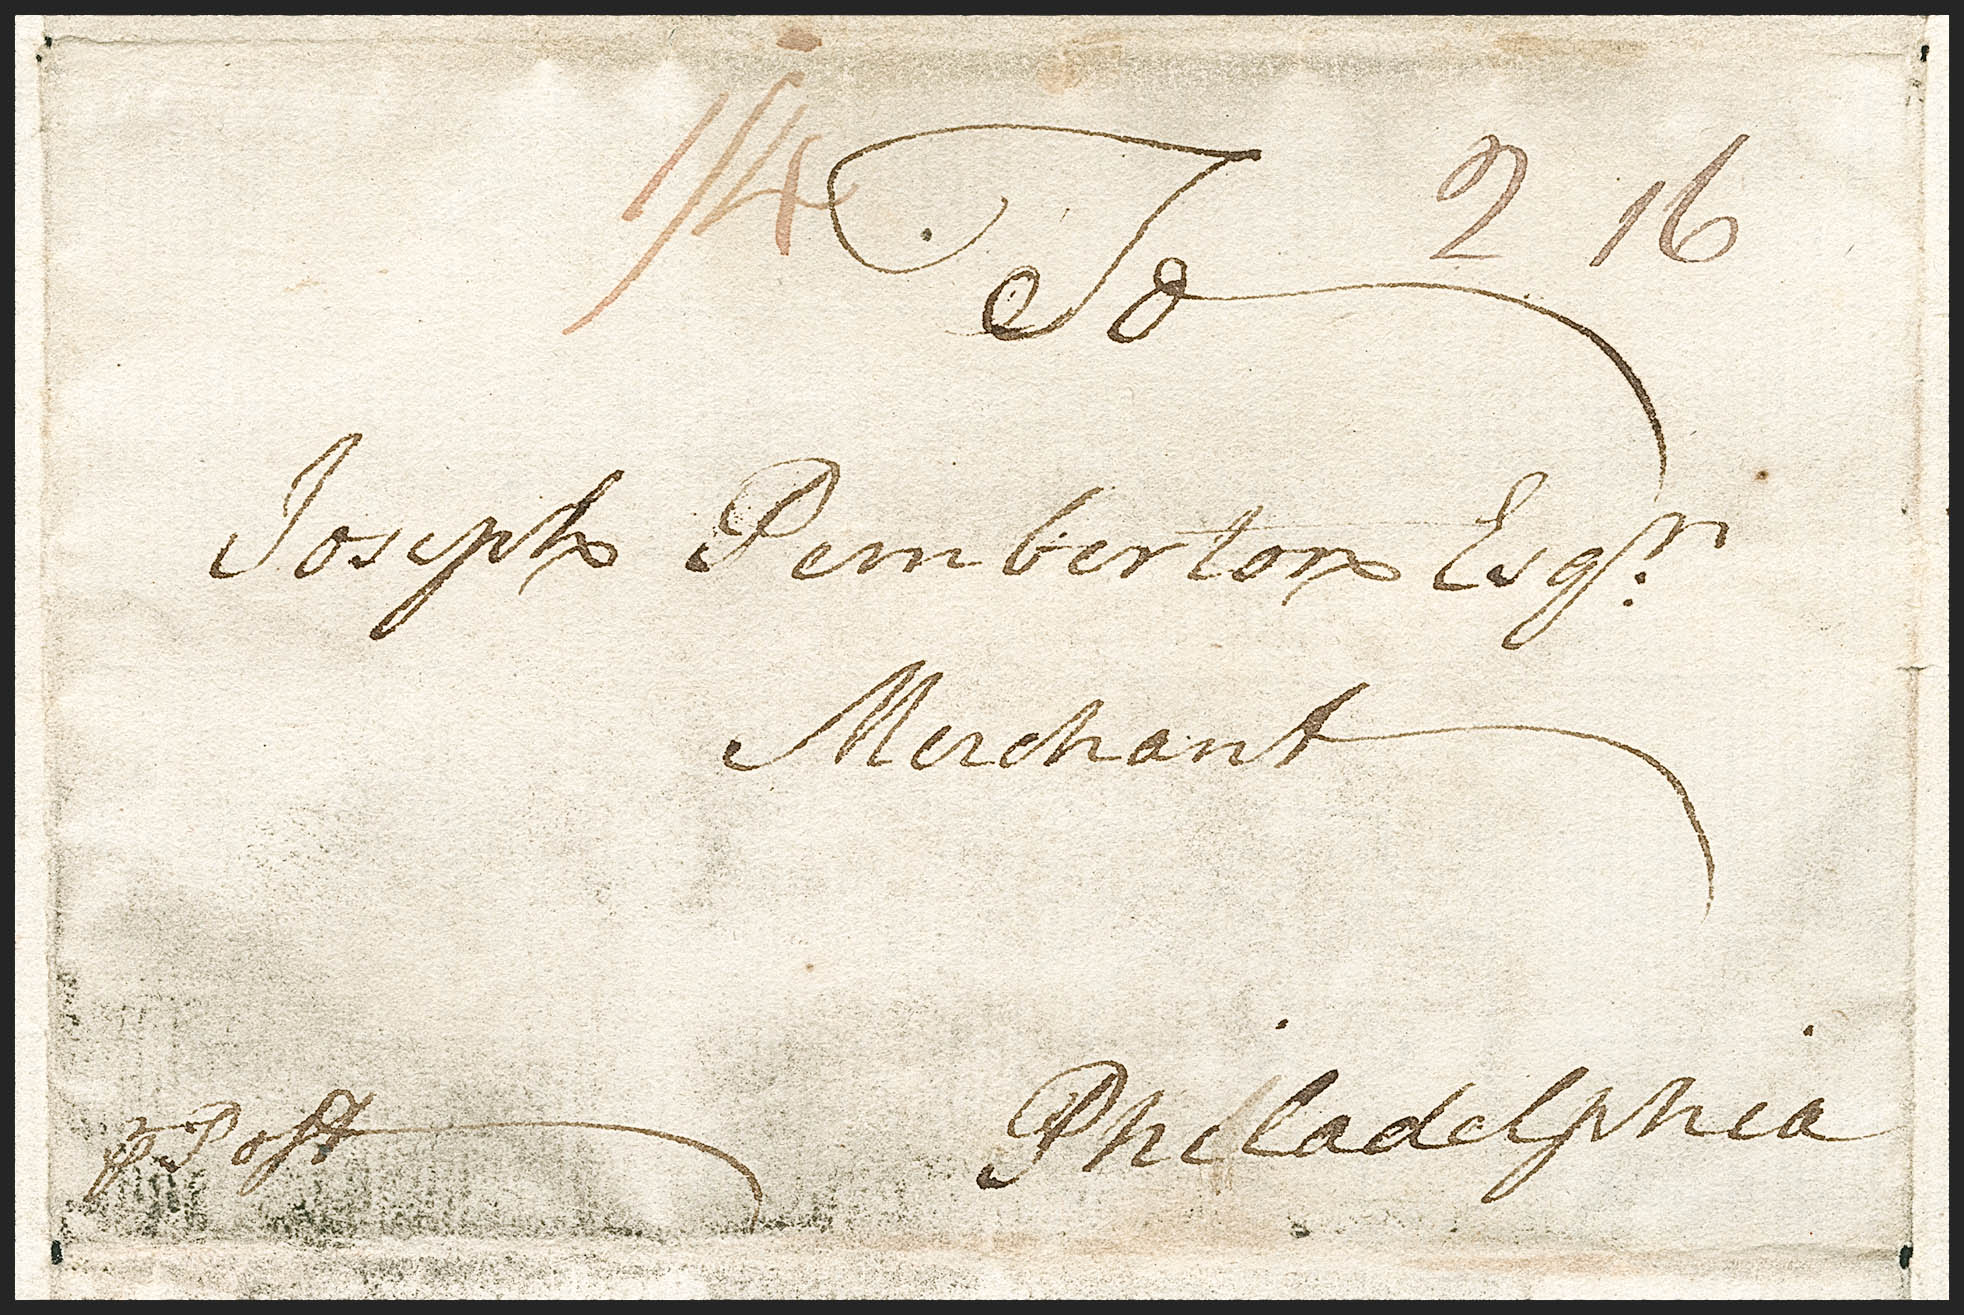 1/4
To
2 16
Joseph Pemberton Esqr.
Merchant
p Post
Philadelphia